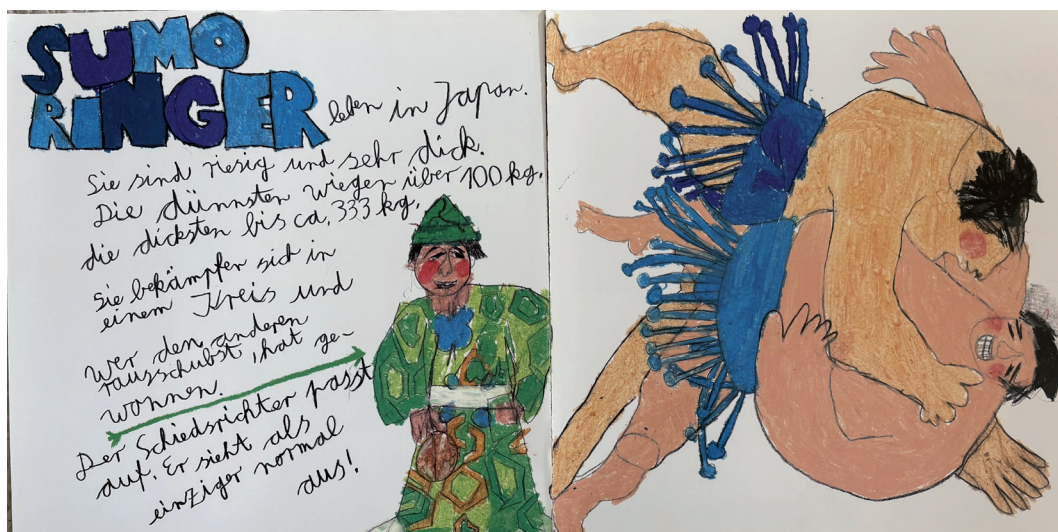 SUMO
RINGER leben in Japan.
Sie sind riesig und sehr dick.
Die dünnsten wiegen über 100 kg,
die dicksten bis ca. 333 kg.
Sie bekämpfen sich in
einem Kreis und
wer den anderen
rausschubst, hat ge-
wonnen.
Der Schiedsrichter passt
auf. Er sieht als
einziger normal
aus!